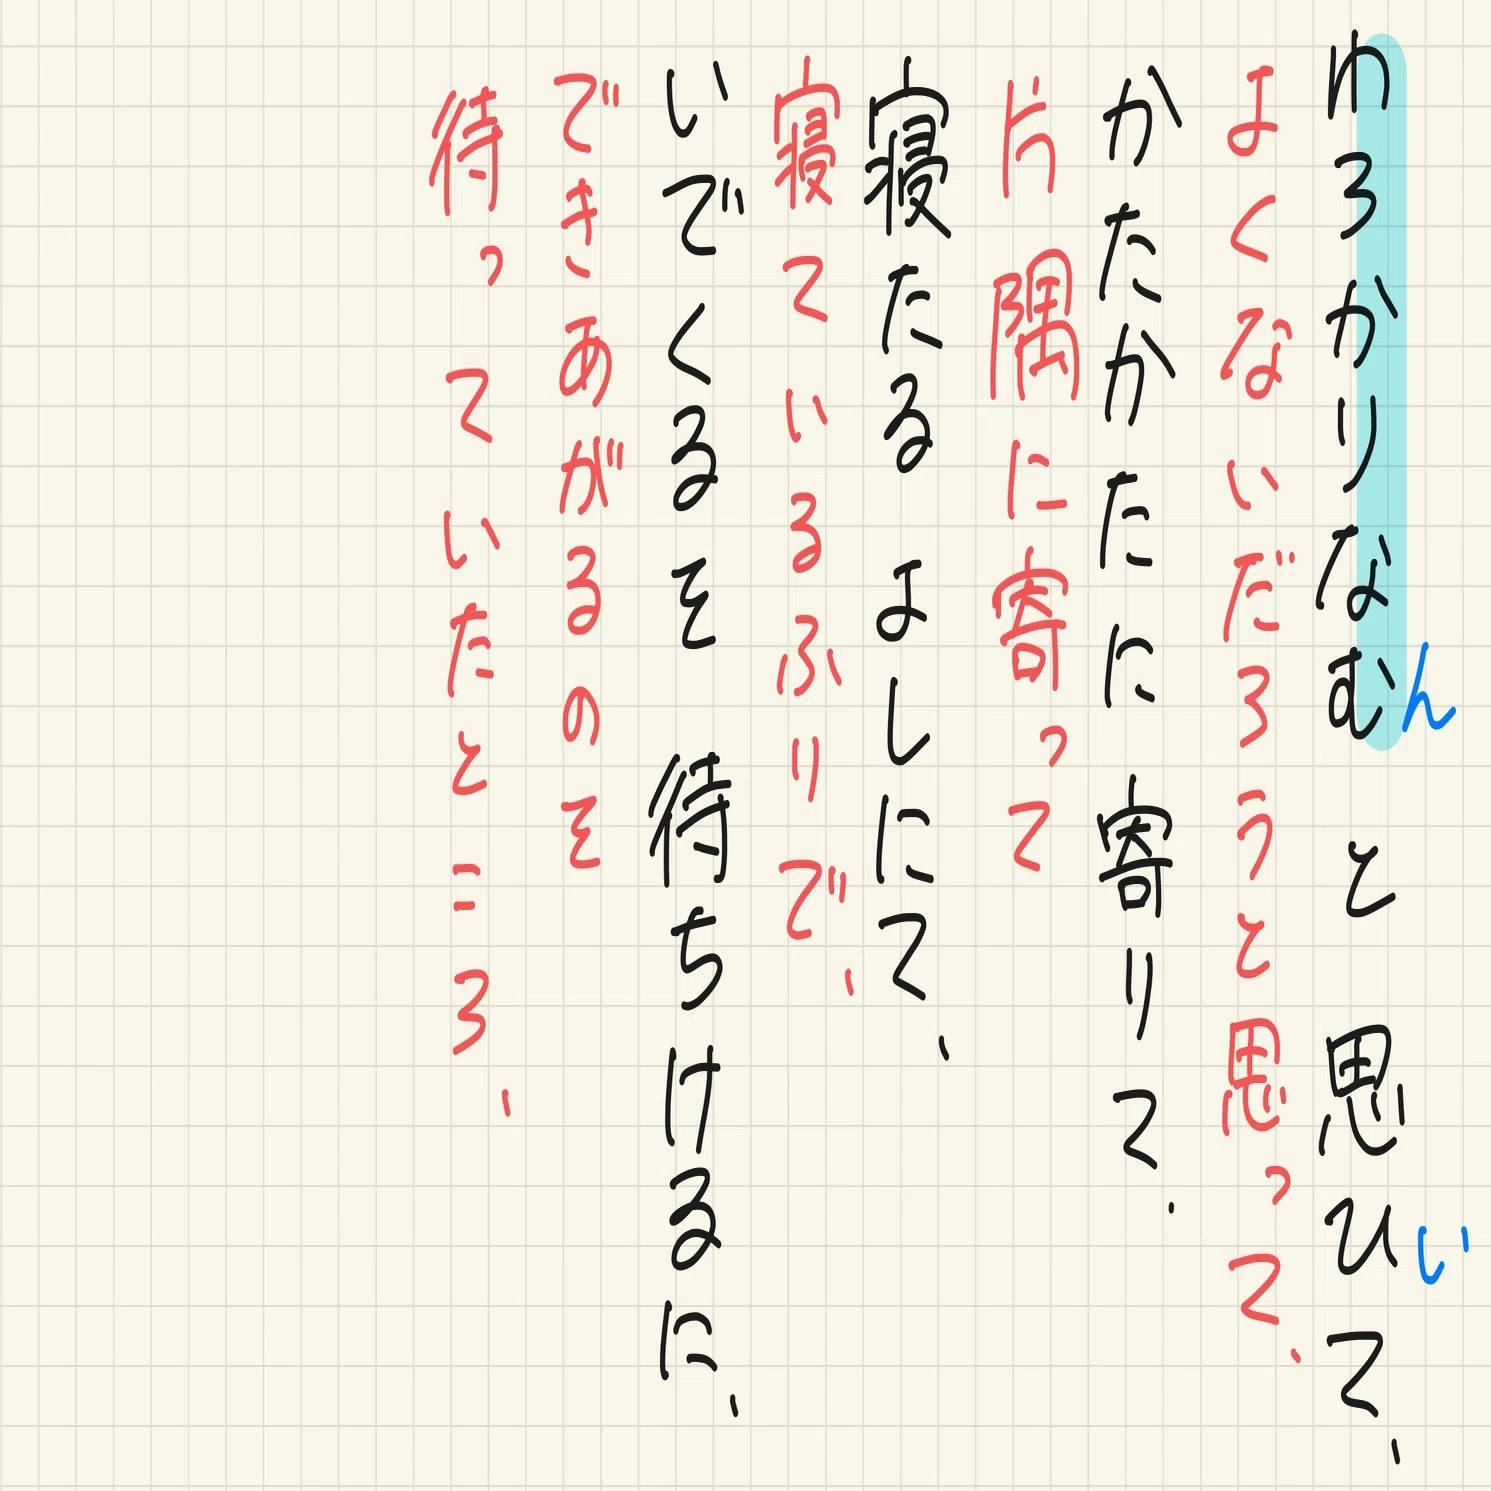 わろかりなむと思ひて、
ん
い
よくないだろうと思って、
かたかたに寄りて、
片隅に寄って
寝たるよしにて、
寝ているふりで、
いでくるを待ちけるに、
できあがるのを
待っていたところ、